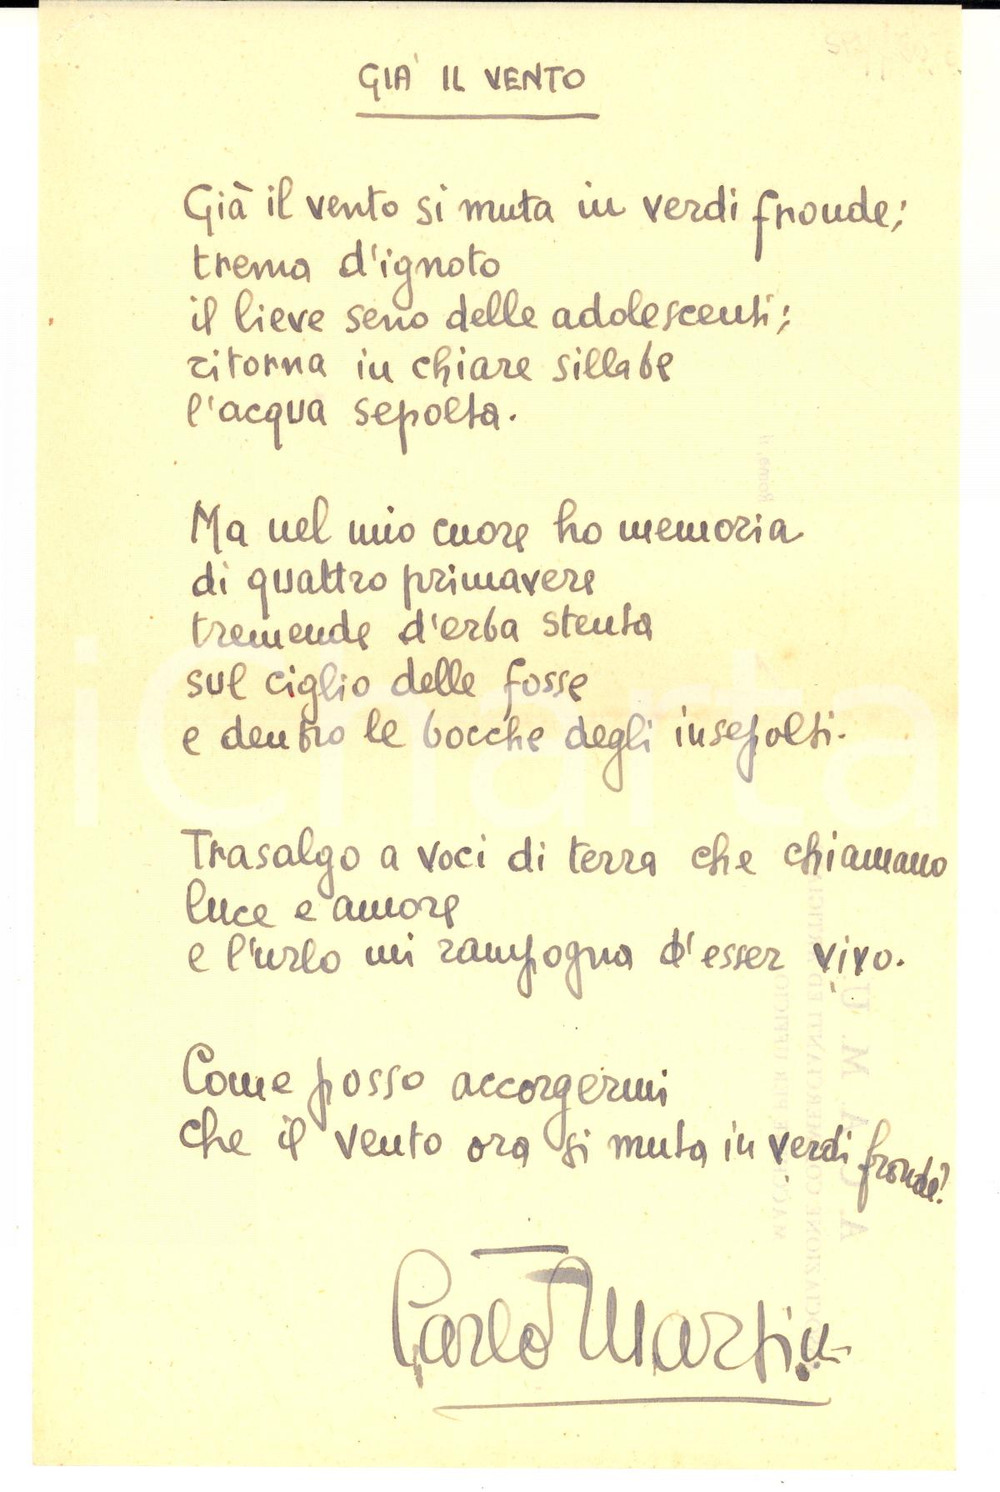 GIA' IL VENTO
Già il vento si muta in verdi fronde;
trema d'ignoto
il lieve seno delle adolescenti;
ritorna in chiare sillabe
l'acqua sepolta.
Ma nel mio cuore ho memoria
di quattro primavere
tremende d'erba stenta
sul ciglio delle fosse
e dentro le bocche degli insepolti.
Trasalgo a voci di terra che chiamano
luce e amore
e l'urlo mi rampogna d'esser vivo.
Come posso accorgermi
che il vento ora si muta in verdi fronde?
Carlo Martini
iCharta